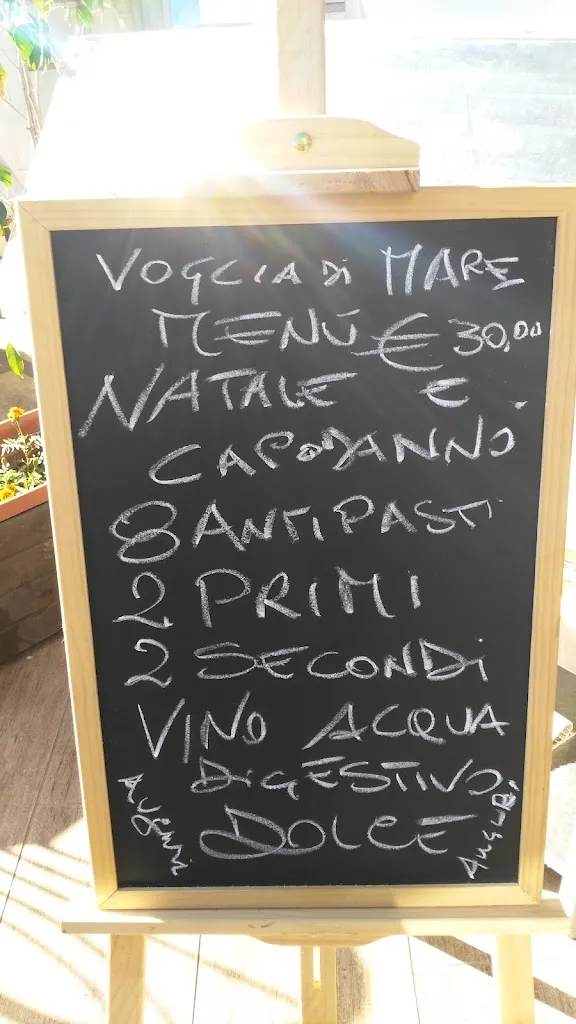 VOGLIA DI MARE
MENÙ € 30,00
NATALE E
CAPODANNO
8 ANTIPASTI
2 PRIMI
2 SECONDI
VINO ACQUA
DIGESTIVO
DOLCE
AUGURI
AUGURI